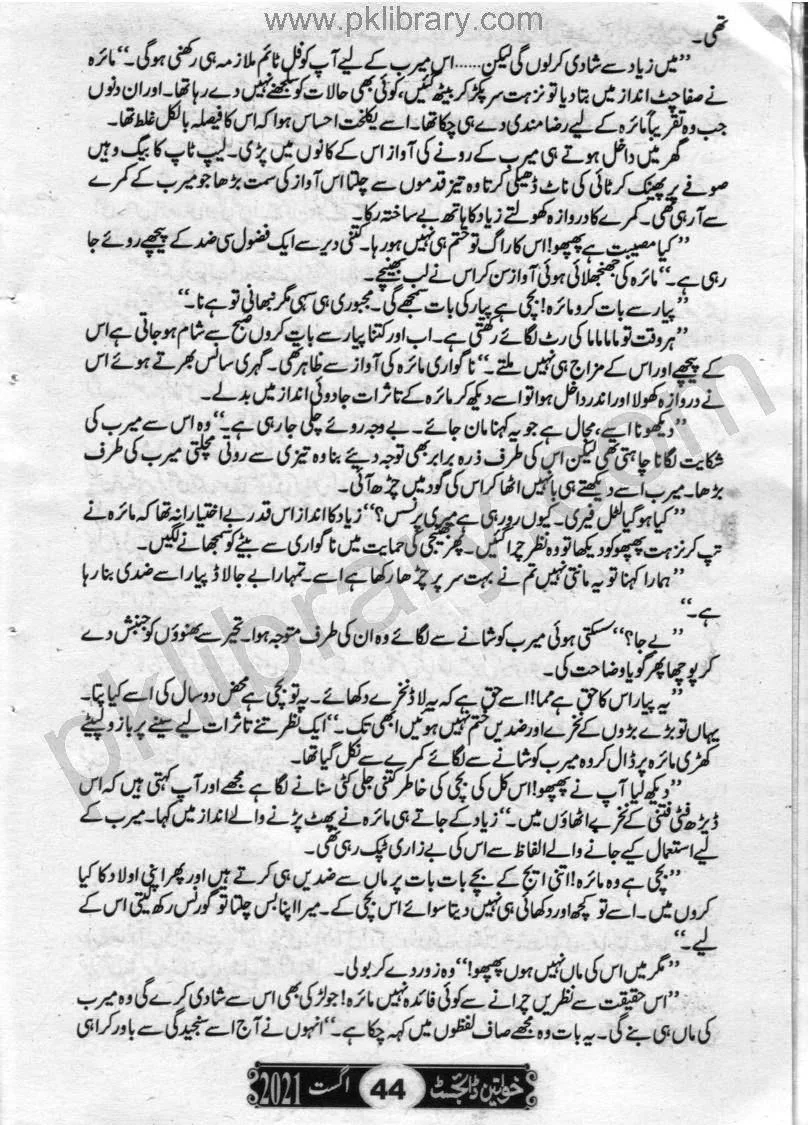 www.pklibrary.com
تھی۔
”میں زیاد سے شادی کرلوں گی لیکن...... اس میرب کے لیے آپ کو فل ٹائم ملازمہ ہی رکھنی ہوگی۔“ مائرہ
نے صفاچٹ انداز میں بتا دیا تو نزہت سر پکڑ کر بیٹھ گئیں، کوئی بھی حالات کو سلجھنے نہیں دے رہا تھا۔ اور ان دنوں
جب وہ تقریباً مائرہ کے لیے رضامندی دے ہی چکا تھا۔ اسے یکلخت احساس ہوا کہ اس کا فیصلہ بالکل غلط تھا۔
گھر میں داخل ہوتے ہی میرب کے رونے کی آواز اس کے کانوں میں پڑی۔ لیپ ٹاپ کا بیگ وہیں
صوفے پر پھینک کر ٹائی کی ناٹ ڈھیلی کرتا وہ تیز قدموں سے چلتا اس آواز کی سمت بڑھا جو میرب کے کمرے
سے آرہی تھی۔ کمرے کا دروازہ کھولتے زیاد کا ہاتھ بے ساختہ رکا۔
”کیا مصیبت ہے پھپھو! اس کا راگ تو ختم ہی نہیں ہو رہا۔ کتنی دیر سے ایک فضول سی ضد کے پیچھے روئے جا
رہی ہے۔“ مائرہ کی جھنجھلائی ہوئی آواز سن کر اس نے لب بھینچے۔
”پیار سے بات کرو مائرہ! بچی ہے پیار کی بات سمجھے گی۔ مجبوری ہی سہی مگر نبھانی تو ہے نا۔“
”ہر وقت تو ماما ماما کی رٹ لگائے رکھتی ہے۔ اب اور کتنا پیار سے بات کروں صبح سے شام ہو جاتی ہے اس
کے پیچھے اور اس کے مزاج ہی نہیں ملتے۔“ ناگواری مائرہ کی آواز سے ظاہر تھی۔ گہری سانس بھرتے ہوئے اس
نے دروازہ کھولا اور اندر داخل ہوا تو اسے دیکھ کر مائرہ کے تاثرات جادوئی انداز میں بدلے۔
”دیکھو نا اسے، مجال ہے جو یہ کہنا مان جائے۔ بے وجہ روئے چلی جا رہی ہے۔“ وہ اس سے میرب کی
شکایت لگانا چاہتی تھی لیکن اس کی طرف ذرہ برابر بھی توجہ دیئے بنا وہ تیزی سے روتی مچلتی میرب کی طرف
بڑھا۔ میرب اسے دیکھتے ہی بانہیں اٹھا کر اس کی گود میں چڑھ آئی۔
”کیا ہو گیا لٹل فیری۔ کیوں رو رہی ہے میری پرنس؟“ زیاد کا انداز اس قدر بے اختیارانہ تھا کہ مائرہ نے
تپ کر نزہت پھپھو کو دیکھا تو وہ نظر چرا گئیں۔ پھر بھتیجی کی حمایت میں ناگواری سے بیٹے کو سمجھانے لگیں۔
”ہمارا کہنا تو یہ مانتی نہیں تم نے بہت سر پر چڑھا رکھا ہے اسے۔ تمہارا بے جا لاڈ پیار اسے ضدی بنا رہا
ہے۔“
”بے جا؟“ سسکتی ہوئی میرب کو شانے سے لگائے وہ ان کی طرف متوجہ ہوا۔ تحیر سے بھنوؤں کو جنبش دے
کر پوچھا پھر گویا وضاحت کی۔
”یہ پیار اس کا حق ہے مما! اسے حق ہے کہ یہ لاڈ نخرے دکھائے۔ یہ تو بچی ہے محض دو سال کی اسے کیا پتا۔
یہاں تو بڑے بڑوں کے نخرے اور ضدیں ختم نہیں ہوئیں ابھی تک۔“ ایک نظر تنے تاثرات لیے سینے پر بازو لپیٹے
کھڑی مائرہ پر ڈال کر وہ میرب کو شانے سے لگائے کمرے سے نکل گیا تھا۔
”دیکھ لیا آپ نے پھپھو! اس کل کی بچی کی خاطر کتنی جلی کٹی سنانے لگا ہے مجھے اور آپ کہتی ہیں کہ اس
ڈیڑھ فٹی فتنی کے نخرے اٹھاؤں میں۔“ زیاد کے جاتے ہی مائرہ نے پھٹ پڑنے والے انداز میں کہا۔ میرب کے
لیے استعمال کیے جانے والے الفاظ سے اس کی بے زاری ٹپک رہی تھی۔
”بچی ہے وہ مائرہ! اتنی ایج کے بچے بات بات پر ماں سے ضدیں ہی کرتے ہیں اور پھر اپنی اولاد کا کیا
کروں میں۔ اسے تو کچھ اور دکھائی ہی نہیں دیتا سوائے اس بچی کے۔ میرا اپنا بس چلتا تو گورنس رکھ لیتی اس کے
لیے۔“
”مگر میں اس کی ماں نہیں ہوں پھپھو!“ وہ زور دے کر بولی۔
”اس حقیقت سے نظریں چرانے سے کوئی فائدہ نہیں مائرہ! جو لڑکی بھی اس سے شادی کرے گی وہ میرب
کی ماں ہی بنے گی۔ یہ بات وہ مجھے صاف لفظوں میں کہہ چکا ہے۔“ انہوں نے آج اسے سنجیدگی سے باور کرا ہی
خواتین ڈائجسٹ 44 اگست 2021
pklibrary.com